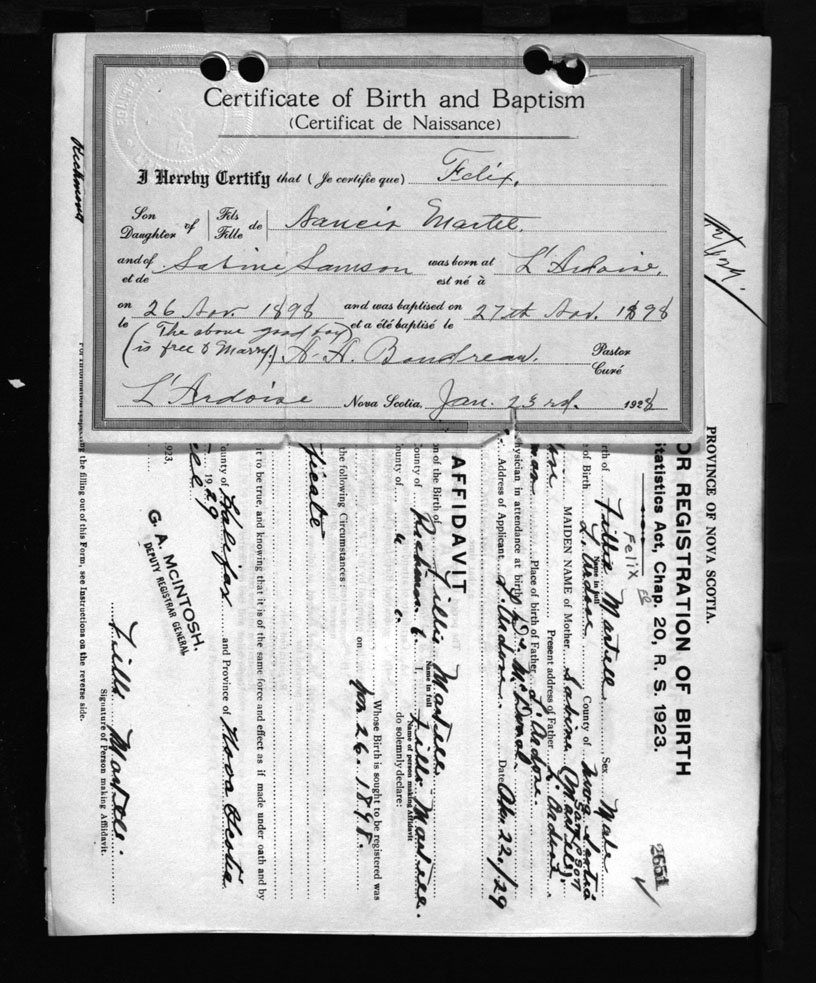 Certificate of Birth and Baptism
(Certificat de Naissance)
I Hereby Certify that (Je certifie que) Felix,
Son Daughter of Fils Fille de Martel,
and of et de Sabine Samson was born at est né à L'Ardoise,
on le 26 Nov. 1898 and was baptised on et a été baptisé le 27th Nov. 1898
(The above good boy
is free to Marry.) A. H. Boudreau. Pastor Curé
L'Ardoise Nova Scotia, Jan. 23rd. 1928
Richmond
PROVINCE OF NOVA SCOTIA.
OR REGISTRATION OF BIRTH
tatistics Act, Chap. 20, R. S. 1923.
2551
Felix
rth of Martell Sex Male
Name in full
of Birth L'Ardoise County of Nova Scotia
Sampson
MAIDEN NAME of Mother Sabine (Martell).
Present address of Father L'Ardoise
Place of birth of Father L'Ardoise.
ysician in attendance at birth Dr. McDonald
Address of Applicant L'Ardoise. Date 22/29
AFFIDAVIT
on of the Birth of Martell
Name in full
ounty of Richmond I, Martell.
Name of person making Affidavit
ounty of " " do solemnly declare:
Whose Birth is sought to be registered was
on Nov 26. 1898.
the following Circumstances:
ficate
it to be true, and knowing that it is of the same force and effect as if made under oath and by
ounty of Halifax and Province of Nova Scotia
1929
1923.
G. A. McINTOSH.
DEPUTY REGISTRAR GENERAL
Martell.
Signature of Person making Affidavit.
the filling out of this Form, see Instructions on the reverse side.